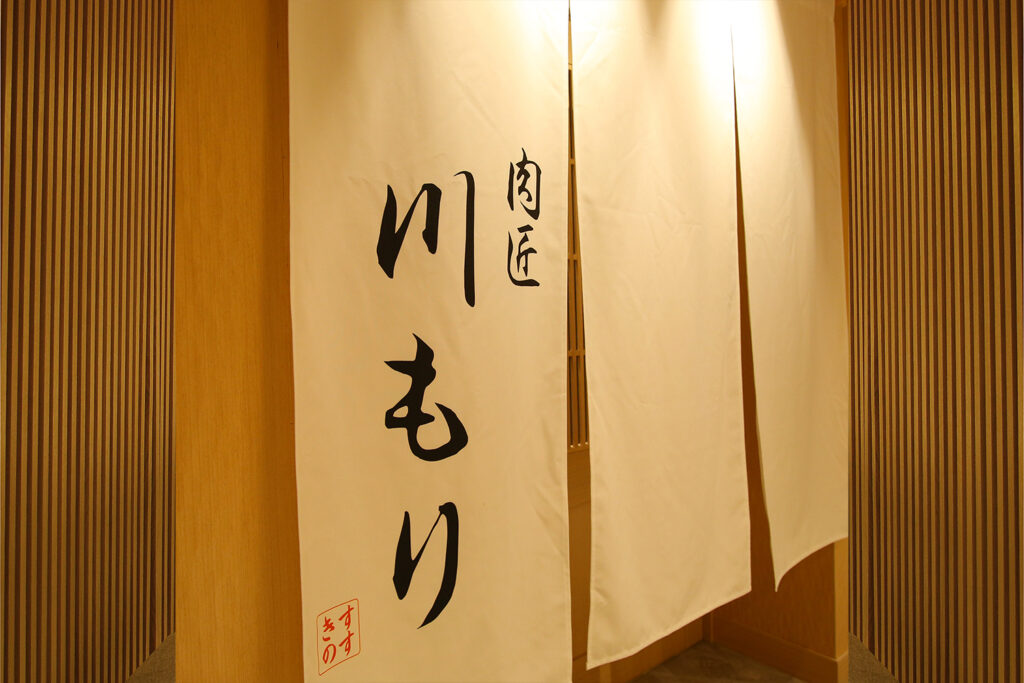 肉匠
川もり
すす
きの